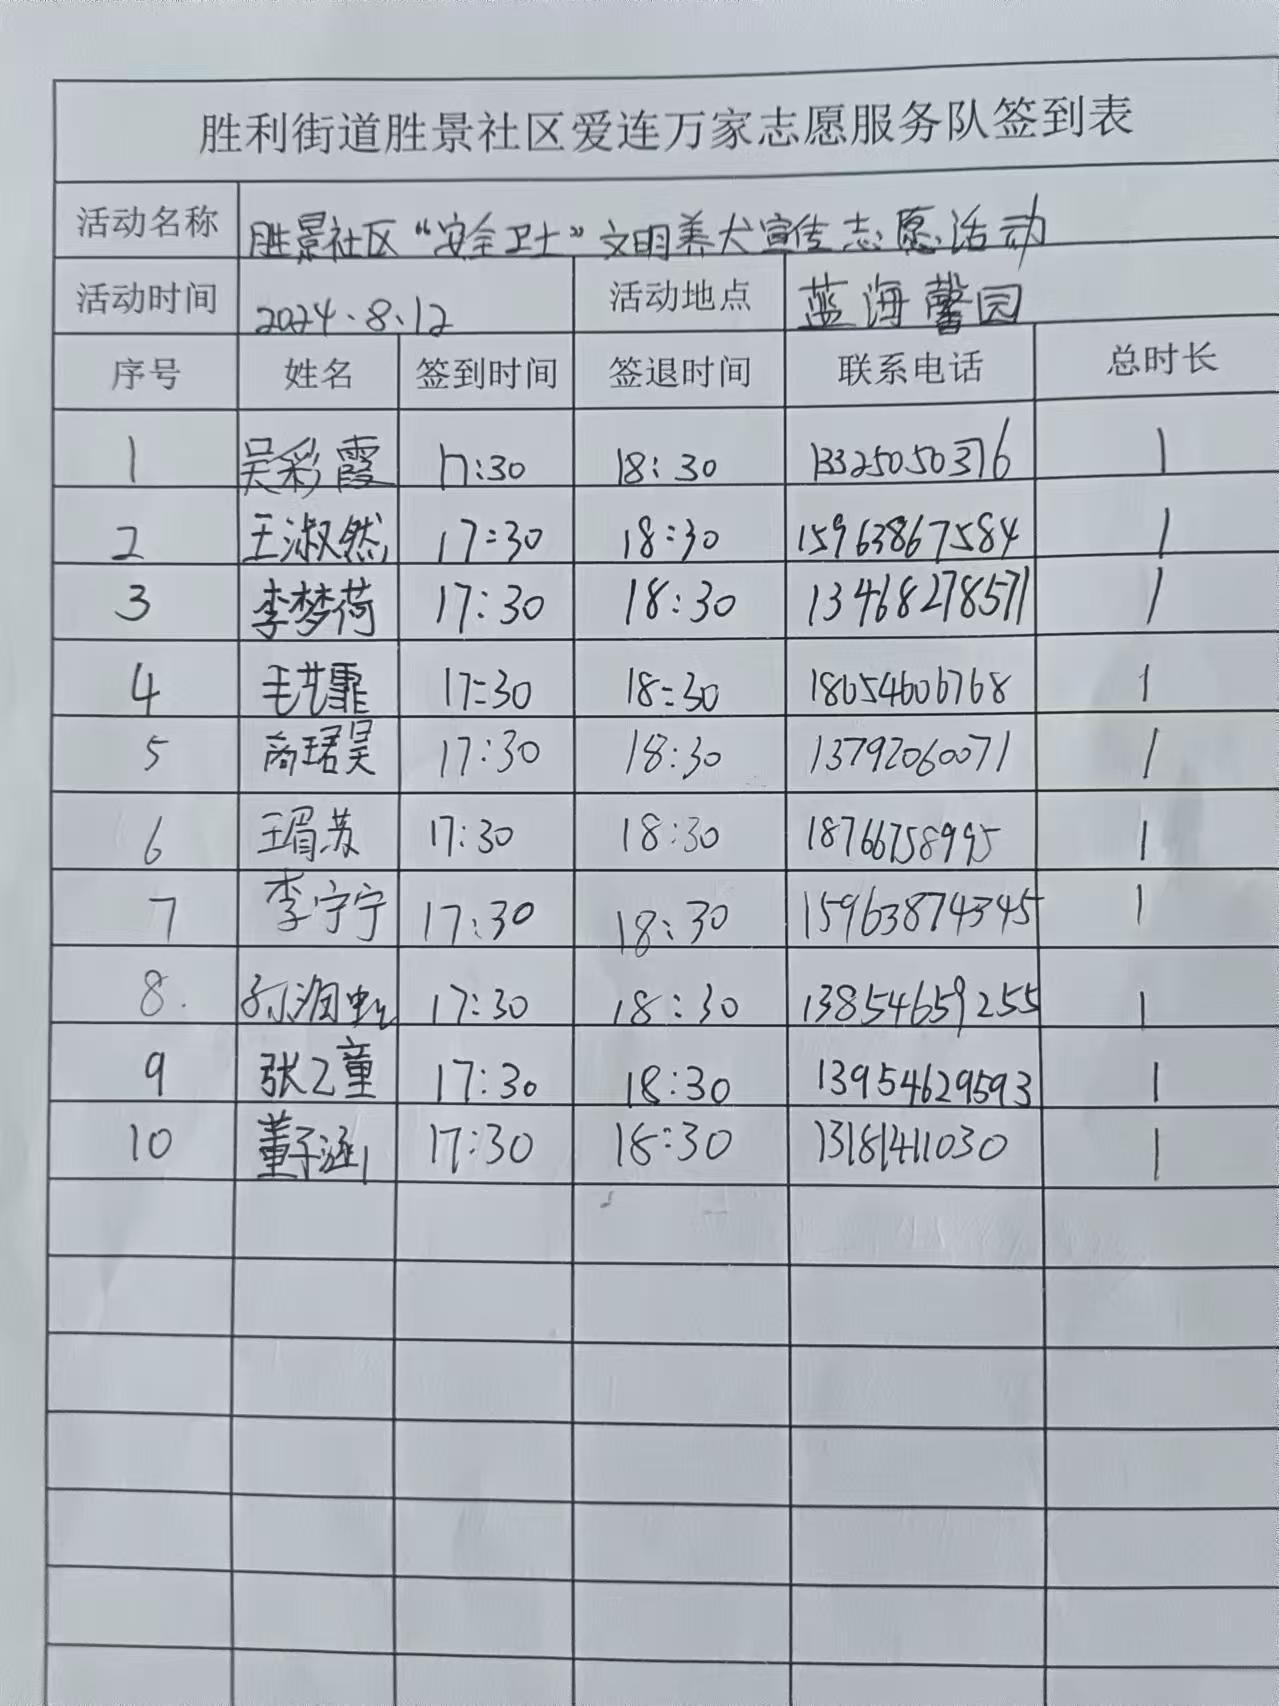 胜利街道胜景社区爱连万家志愿服务队签到表
活动名称 胜景社区“安全卫士”文明养犬宣传志愿活动
活动时间 2024.8.12 活动地点 蓝海馨园
序号 姓名 签到时间 签退时间 联系电话 总时长
1 吴彩霞 17:30 18:30 13325050376 1
2 王淑然 17:30 18:30 15963867584 1
3 李梦荷 17:30 18:30 13468278571 1
4 毛艺霏 17:30 18:30 18654606768 1
5 商珺昊 17:30 18:30 13792060071 1
6 王瑂苏 17:30 18:30 18766758995 1
7 李宁宁 17:30 18:30 15963874345 1
8 17:30 18:30 13854659255 1
9 张乙童 17:30 18:30 13954629593 1
10 董子涵 17:30 18:30 13181411030 1